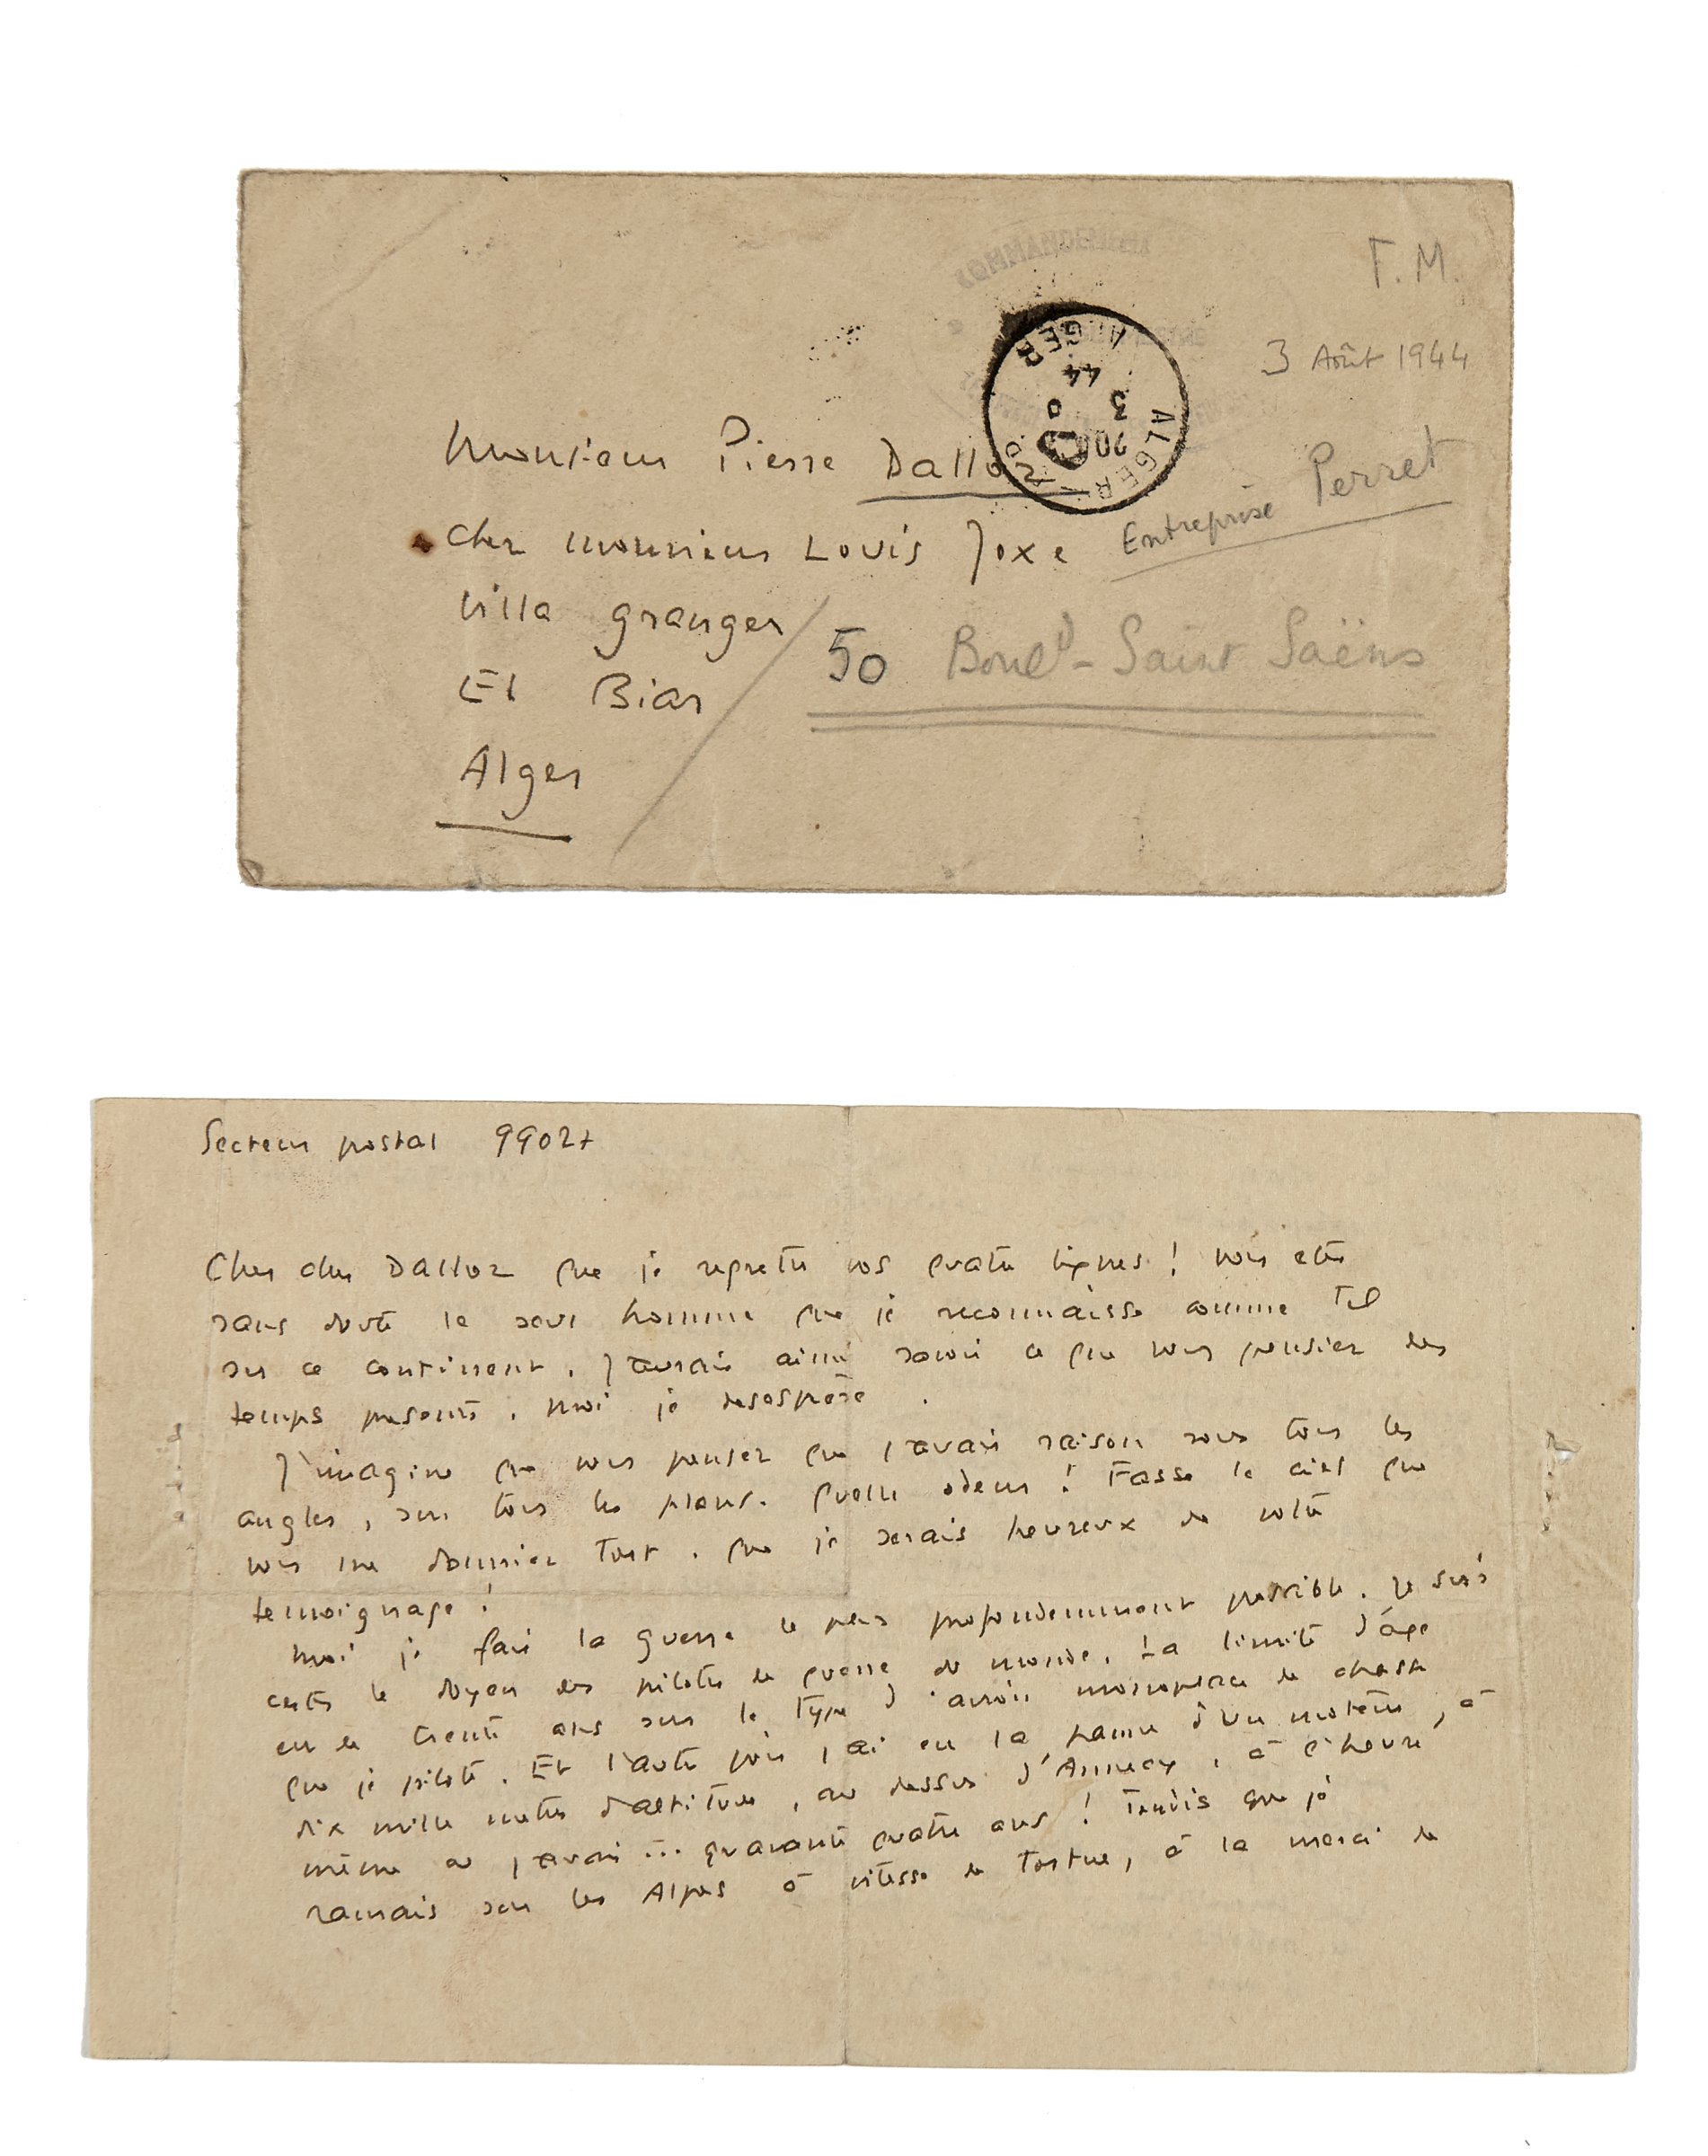 F. M.
3 Août 1944
ALGER
44
3
20
ALGER R.P.
Monsieur Pierre Dalloz
chez monsieur Louis Joxe
Entreprise Perret
villa granger
50 Boul^d - Saint Saëns
El Biar
Alger
Secteur postal 99027
Cher cher Dalloz que je regrette vos quatre lignes ! vous etes
sans doute le seul homme que je reconnaisse comme tel
sur ce continent. J'aurais aimé savoir ce que vous pensiez des
temps presents. Moi je desespère.
J'imagine que vous pensez que j'avais raison sous tous les
angles, sur tous les plans. Quelle odeur ! Fasse le ciel que
vous me donniez tort. Que je serais heureux de votre
temoignage !
Moi je fais la guerre le plus profondemment possible. Je suis
certes le doyen des pilotes de guerre du monde. La limite d'âge
est de trente ans sur le type d'avion monoplace de chasse
que je pilote. Et l'autre jour j'ai eu la panne d'un moteur, à
dix mille metres d'altitude, au dessus d'Annecy, à l'heure
même où j'avais ... quarante quatre ans ! Tandis que je
ramais sur les Alpes à vitesse de tortue, à la merci de